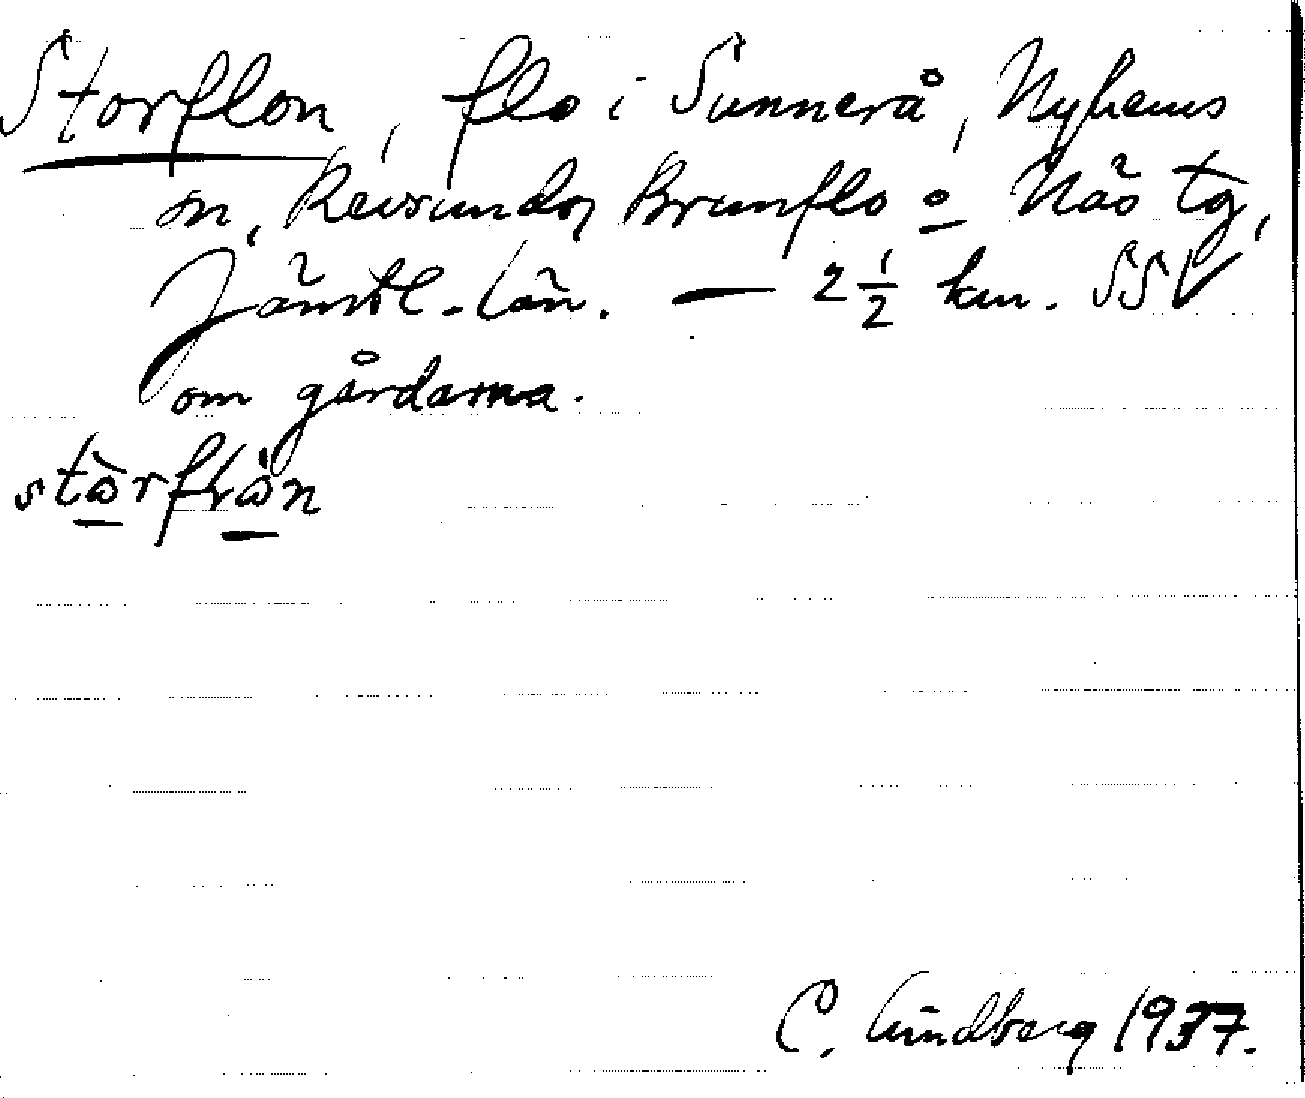 Storflon, flo i Sunnerå, Nyhems
sn, Revsunds, Brunflo o Näs tg,
Jämtl. län. — 2 1/2 km. SSV
om gårdarna.
C. Lindberg 1937.